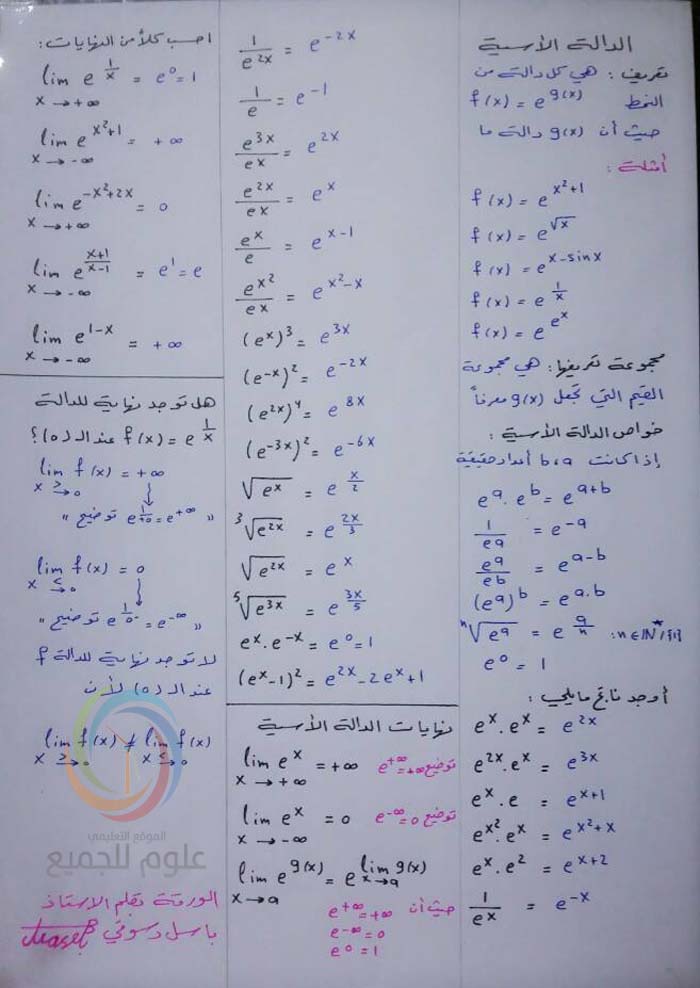 الدالة الأسية
تعريف : هي كل دالة من
النمط f(x) = e^{g(x)}
حيث أن g(x) دالة ما
أمثلة :
f(x) = e^{x²+1}
f(x) = e^{√x}
f(x) = e^{x-sinx}
f(x) = e^{1/x}
f(x) = e^{e^x}
مجموعة تعريفها : هي مجموعة
القيم التي تجعل g(x) معرفاً
خواص الدالة الأسية :
إذا كانت a، b أعداد حقيقية
e^a . e^b = e^{a+b}
1/e^a = e^{-a}
e^a/e^b = e^{a-b}
(e^a)^b = e^{a.b}
ⁿ√(e^a) = e^{a/n} : n∈ℕ*/{1}
e^0 = 1
أوجد ناتج مايلي :
e^x . e^x = e^{2x}
e^{2x} . e^x = e^{3x}
e^x . e = e^{x+1}
e^{x²} . e^x = e^{x²+x}
e^x . e² = e^{x+2}
1/e^x = e^{-x}
1/e^{2x} = e^{-2x}
1/e = e^{-1}
e^{3x}/e^x = e^{2x}
e^{2x}/e^x = e^x
e^x/e = e^{x-1}
e^{x²}/e^x = e^{x²-x}
(e^x)³ = e^{3x}
(e^{-x})² = e^{-2x}
(e^{2x})⁴ = e^{8x}
(e^{-3x})² = e^{-6x}
√(e^x) = e^{x/2}
³√(e^{2x}) = e^{2x/3}
√(e^{2x}) = e^x
⁵√(e^{3x}) = e^{3x/5}
e^x . e^{-x} = e^0 = 1
(e^x-1)² = e^{2x} - 2e^x + 1
نهايات الدالة الأسية
lim e^x = +∞ توضيح e^{+∞} = +∞
x → +∞
lim e^x = 0 توضيح e^{-∞} = 0
x → -∞
lim e^{g(x)} = e^{lim g(x)}
x → a x → a
حيث أن e^{+∞} = +∞
e^{-∞} = 0
e^0 = 1
احسب كلاً من النهايات :
lim e^{1/x} = e^0 = 1
x → +∞
lim e^{x²+1} = +∞
x → -∞
lim e^{-x²+2x} = 0
x → +∞
lim e^{(x+1)/(x-1)} = e^1 = e
x → -∞
lim e^{1-x} = +∞
x → -∞
هل توجد نهاية للدالة
f(x) = e^{1/x} عند الـ (0) ؟
lim f(x) = +∞
x >→ 0
" توضيح e^{1/+0} = e^{+∞} "
lim f(x) = 0
x <→ 0
" توضيح e^{1/0-} = e^{-∞} "
لا توجد نهاية للدالة f
عند الـ (0) لأن
lim f(x) ≠ lim f(x)
x >→ 0 x <→ 0
الموقع التعليمي
علوم للجميع
الورقة بقلم الاستاذ
باسل دسوقي